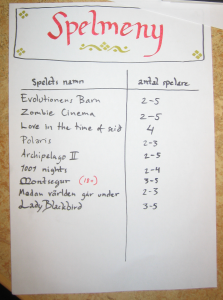 Spelmeny
Spelets namn antal spelare
Evolutionens Barn 2-5
Zombie Cinema 2-5
Love in the time of seid 4
Polaris 2-3
Archipelago II 2-5
1001 nights 2-4
Montsegur (18+) 3-5
Medan världen går under 2-3
Lady Blackbird 3-5